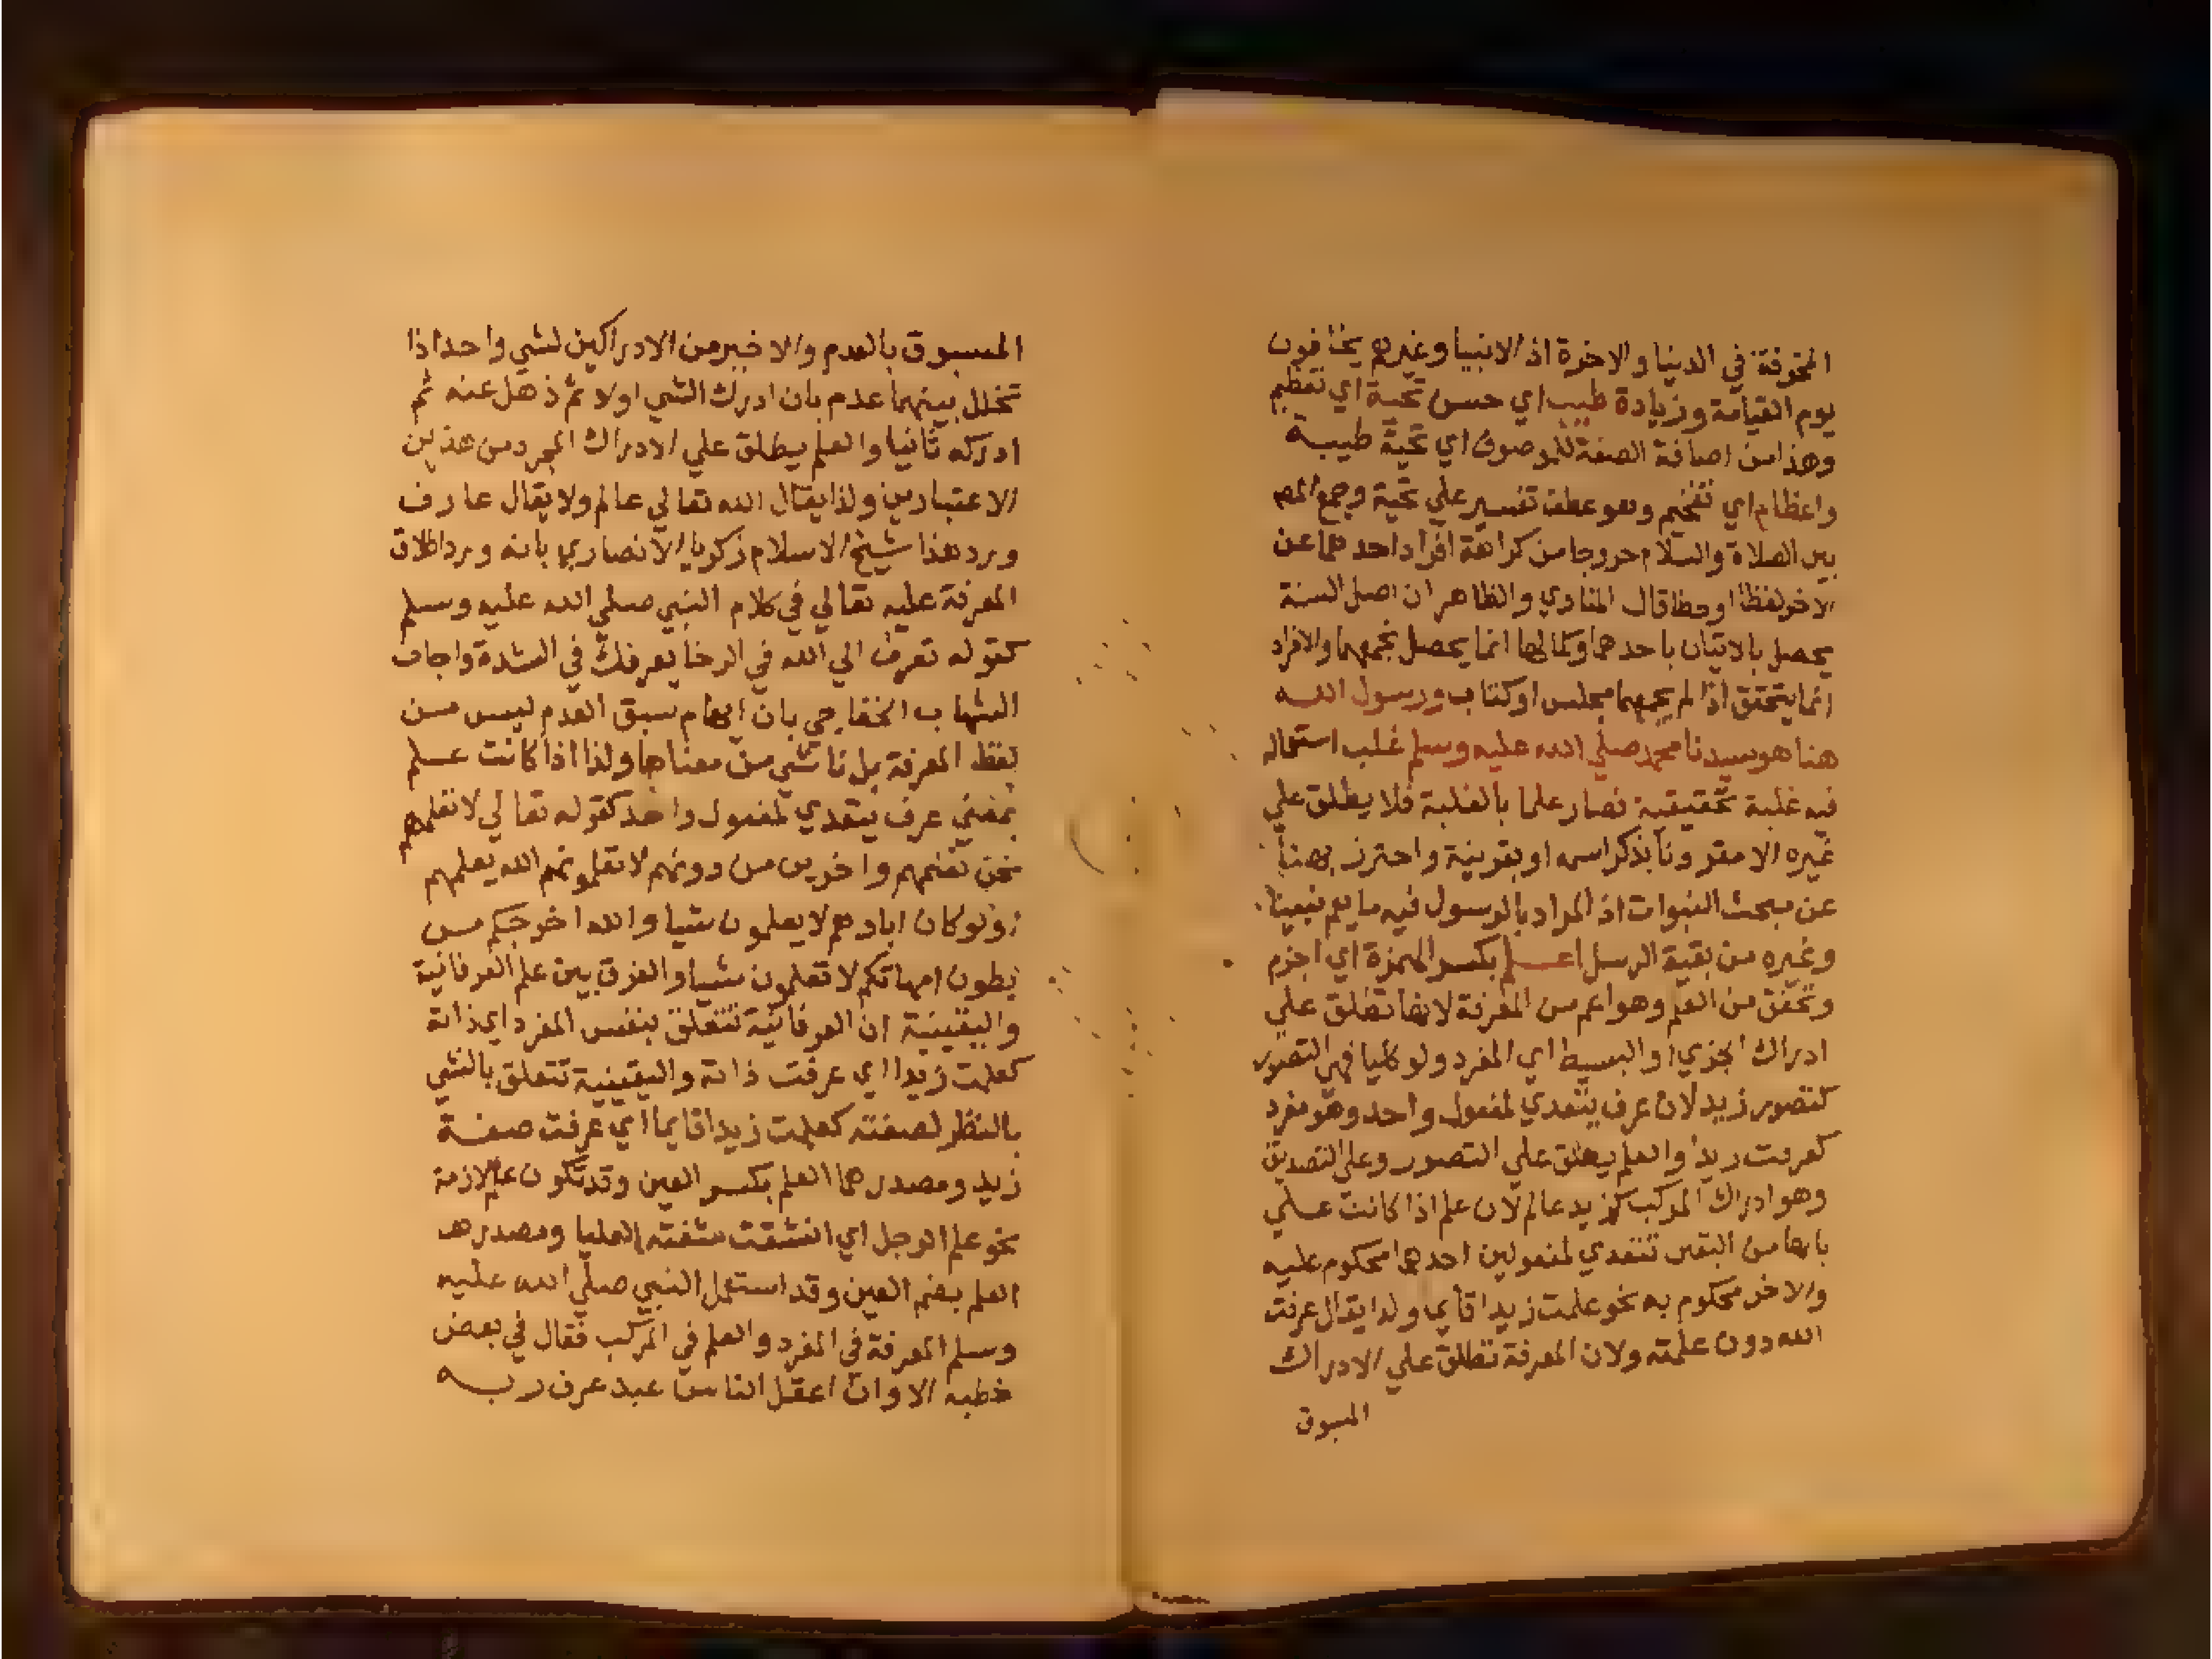 المخوفة في الدنيا والاخرة اذ الانبيا وغيرهم يخافون
يوم القيامة وزيادة طيب اي حسن تحية اي تعظيم
وهذا من اضافة الصفة للموصوف اي تحية طيبة
واعظام اي تفخيم وهو عطف تفسير علي تحية وجمع المص
بين الصلاة والسلام خروجا من كراهة افراد احدهما عن
الاخر لفظا او خطا قال المناوي والظاهر ان اصل السنة
يحصل بالاتيان باحدهما وكمالها انما يحصل بجمعهما والافراد
انما يتحقق اذا لم يجمعهما مجلس او كتاب ورسول الله
هنا هو سيدنا محمد صلي الله عليه وسلم غلب استعماله
فيه غلبة تحقيقية فصار علما بالغلبة فلا يطلق علي
غيره الا مقرونا بذكر اسمه او بقرينة واحترز بهنا
عن مبحث النبوات اذ المراد بالرسول فيه ما يعم نبينا
وغيره من بقية الرسل اعلم بكسر الهمزة اي اجزم
وتحقق من العلم وهو اعم من المعرفة لانها تطلق علي
ادراك الجزي او البسيط اي المفرد ولو كليا فهي التصور
كتصور زيد لان عرف يتعدي لمفعول واحد وهو مفرد
كعرفت زيدا والعلم يطلق علي التصور وعلي التصديق
وهو ادراك المركب كزيد عالم لان علم اذا كانت علي
بابها من اليقين تتعدي لمفعولين احدهما محكوم عليه
والاخر محكوم به نحو علمت زيدا قايما ولذا يقال عرفت
الله دون علمته ولان المعرفة تطلق علي الادراك
المسبوق
المسبوق بالعدم والاخير من الادراكين لشي واحد اذا
تخلل بينهما عدم بان ادرك الشي اولا ثم ذهل عنه ثم
ادركه ثانيا والعلم يطلق علي الادراك المجرد من هذين
الاعتبارين ولذا يقال الله تعالي عالم ولا يقال عارف
ورد هذا شيخ الاسلام زكريا الانصاري بانه ورد اطلاق
المعرفة عليه تعالي في كلام النبي صلي الله عليه وسلم
كقوله تعرف الي الله في الرخا يعرفك في الشدة واجاب
الشهاب الخفاجي بان ايهام سبق العدم ليس من
لفظ المعرفة بل ناشي من معناها ولذا اذا كانت علم
بمعني عرف يتعدي لمفعول واحد كقوله تعالي لا تعلمهم
نحن نعلمهم واخرين من دونهم لا تعلمونهم الله يعلمهم
اولو كان اباوهم لا يعلمون شيا والله اخرجكم من
بطون امهاتكم لا تعلمون شيا والفرق بين علم العرفانية
واليقينية ان العرفانية تتعلق بنفس المفرد اي ذاته
كعلمت زيدا اي عرفت ذاته واليقينية تتعلق بالشي
بالنظر لصفته كعلمت زيدا قايما اي عرفت صفة
زيد ومصدرهما العلم بكسر العين وقد تكون علم لازمة
نحو علم الرجل اي انشقت شفته العليا ومصدرها
العلم بفتح العين وقد استعمل النبي صلي الله عليه
وسلم المعرفة في المفرد والعلم في المركب فقال في بعض
خطبه الا وان اعقل الناس عبد عرف ربه